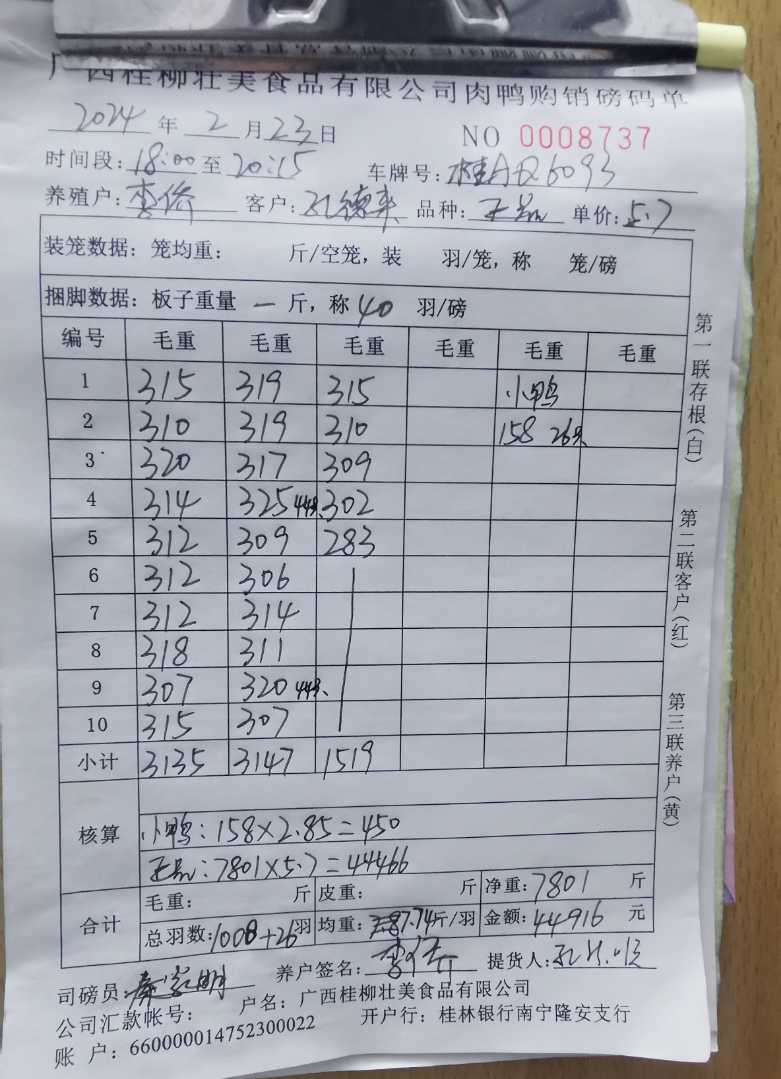 广西桂柳壮美食品有限公司肉鸭购销磅码单
2024 年 2 月 23 日 NO 0008737
时间段: 18:00 至 20:15 车牌号: 桂AQ6093
养殖户: 李侨 客户: 孔德来 品种: 正品 单价: 5.7
装笼数据: 笼均重: 斤/空笼, 装 羽/笼, 称 笼/磅
捆脚数据: 板子重量 一 斤, 称 40 羽/磅
编号 毛重 毛重 毛重 毛重 毛重 毛重
1 315 319 315 小鸭
2 310 319 310 158 26只
3 320 317 309
4 314 325 44羽 302
5 312 309 283
6 312 306
7 312 314
8 318 311
9 307 320 44羽
10 315 307
小计 3135 3147 1519
核算
小鸭: 158×2.85=450
正品: 7801×5.7=44466
合计
毛重: 斤 皮重: 斤 净重: 7801 斤
总羽数: 1008+26 羽 均重: 7.74 斤/羽 金额: 44916 元
司磅员: 养户签名: 李侨 提货人:
公司汇款帐号: 户名: 广西桂柳壮美食品有限公司
账 户: 660000014752300022 开户行: 桂林银行南宁隆安支行
第一联存根(白)
第二联客户(红)
第三联养户(黄)